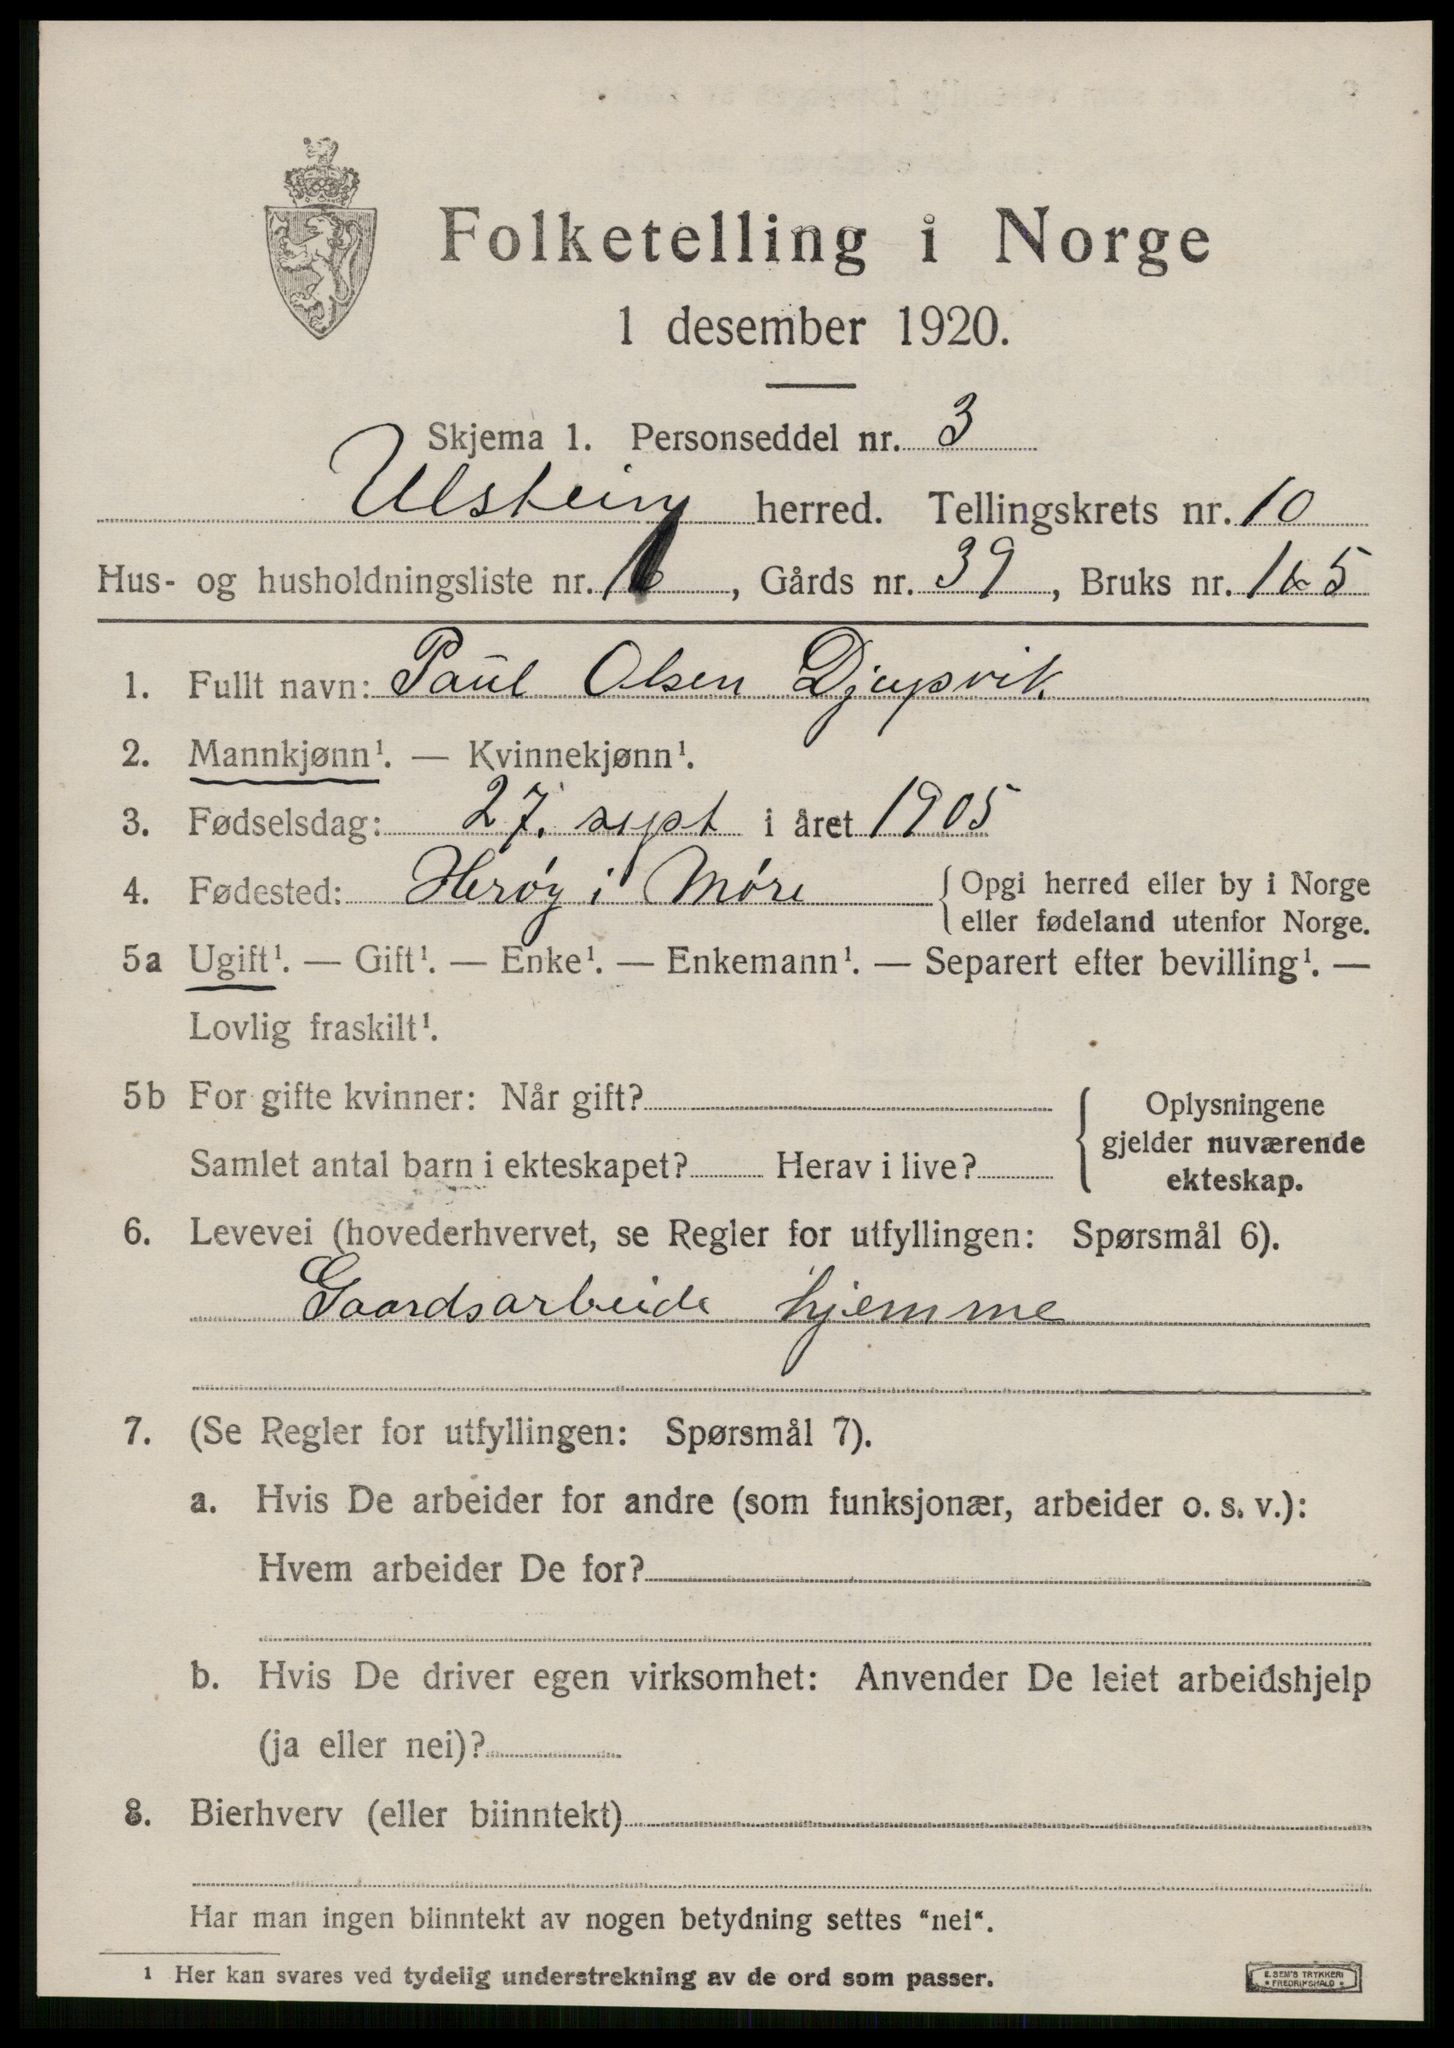 Folketelling i Norge
1 desember 1920.
Skjema 1. Personseddel nr. 3
Ulstein herred. Tellingskrets nr. 10
Hus- og husholdningsliste nr. , Gårds nr. 39, Bruks nr.
1. Fullt navn: Paul Olsen Djupvik
2. Mannkjønn¹. — Kvinnekjønn¹.
3. Fødselsdag: 27. sept i året 1905
4. Fødested: Herøy i Møre {Opgi herred eller by i Norge
eller fødeland utenfor Norge.
5a Ugift¹. — Gift¹. — Enke¹. — Enkemann¹. — Separert efter bevilling¹. —
Lovlig fraskilt¹.
5b For gifte kvinner: Når gift?
Samlet antal barn i ekteskapet? Herav i live?
Oplysningene
gjelder nuværende
ekteskap.
6. Levevei (hovederhvervet, se Regler for utfyllingen: Spørsmål 6).
Gaardsarbeide hjemme
7. (Se Regler for utfyllingen: Spørsmål 7).
a. Hvis De arbeider for andre (som funksjonær, arbeider o. s. v.):
Hvem arbeider De for?
b. Hvis De driver egen virksomhet: Anvender De leiet arbeidshjelp
(ja eller nei)?
8. Bierhverv (eller biinntekt)
Har man ingen biinntekt av nogen betydning settes "nei".
¹ Her kan svares ved tydelig understrekning av de ord som passer.
E. SEM'S TRYKKERI
• FREDRIKSHALD •